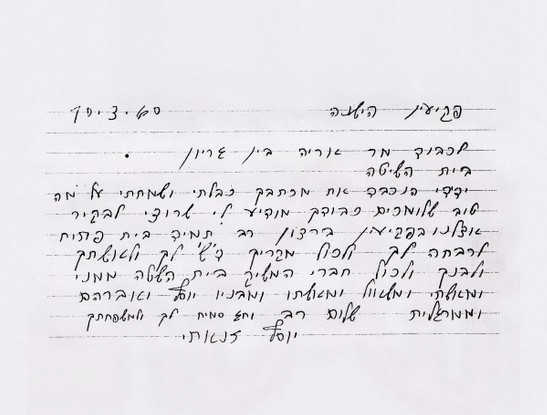 פקיעין הישנה
לכבוד מר אוריה בין גוריון
בית השיטה
ידידי הנכבד את מכתבך קבלתי ושמחתי על מה
טוב שלומכים כבודך מודיע לי שרוצי לבקיר
אצלנו בפקיעין ברצון רב תמיד בית פתוח
לרבתה לך ולכול מקריך ד״ש לך ולאושתך
ולבנך ולכול חברי המשיק בית השטה ממני
ומאשתי ומשאול ומאשתו ומבניו יוסף ואוברהם
וממרגלית שלום רב וחג סמיח לך ולמשפחתך
יוסף זנאותי